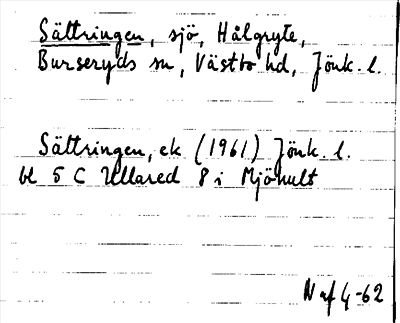 Sättringen, sjö, Hälgryte,
Burseryds sn, Västbo hd, Jönk. l.
Sättringen, ek (1961) Jönk. l.
bl 5 C Ullared 8 i Mjöhult
N af 4-62